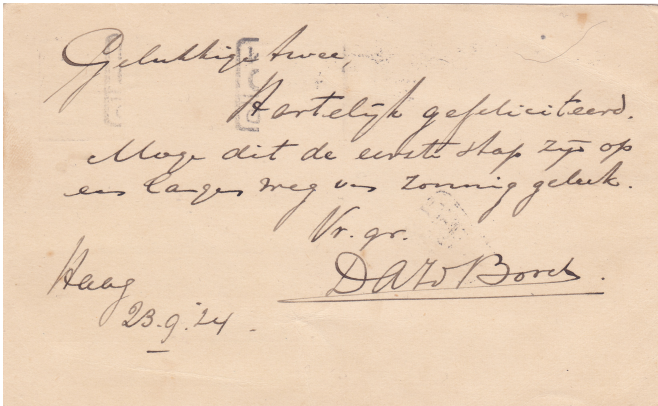 Gelukkige twee,
Hartelijk gefeliciteerd.
Moge dit de eerste stap zijn op
een lange weg van zonnig geluk.
Vr. gr.
Haag
23.9.'24.